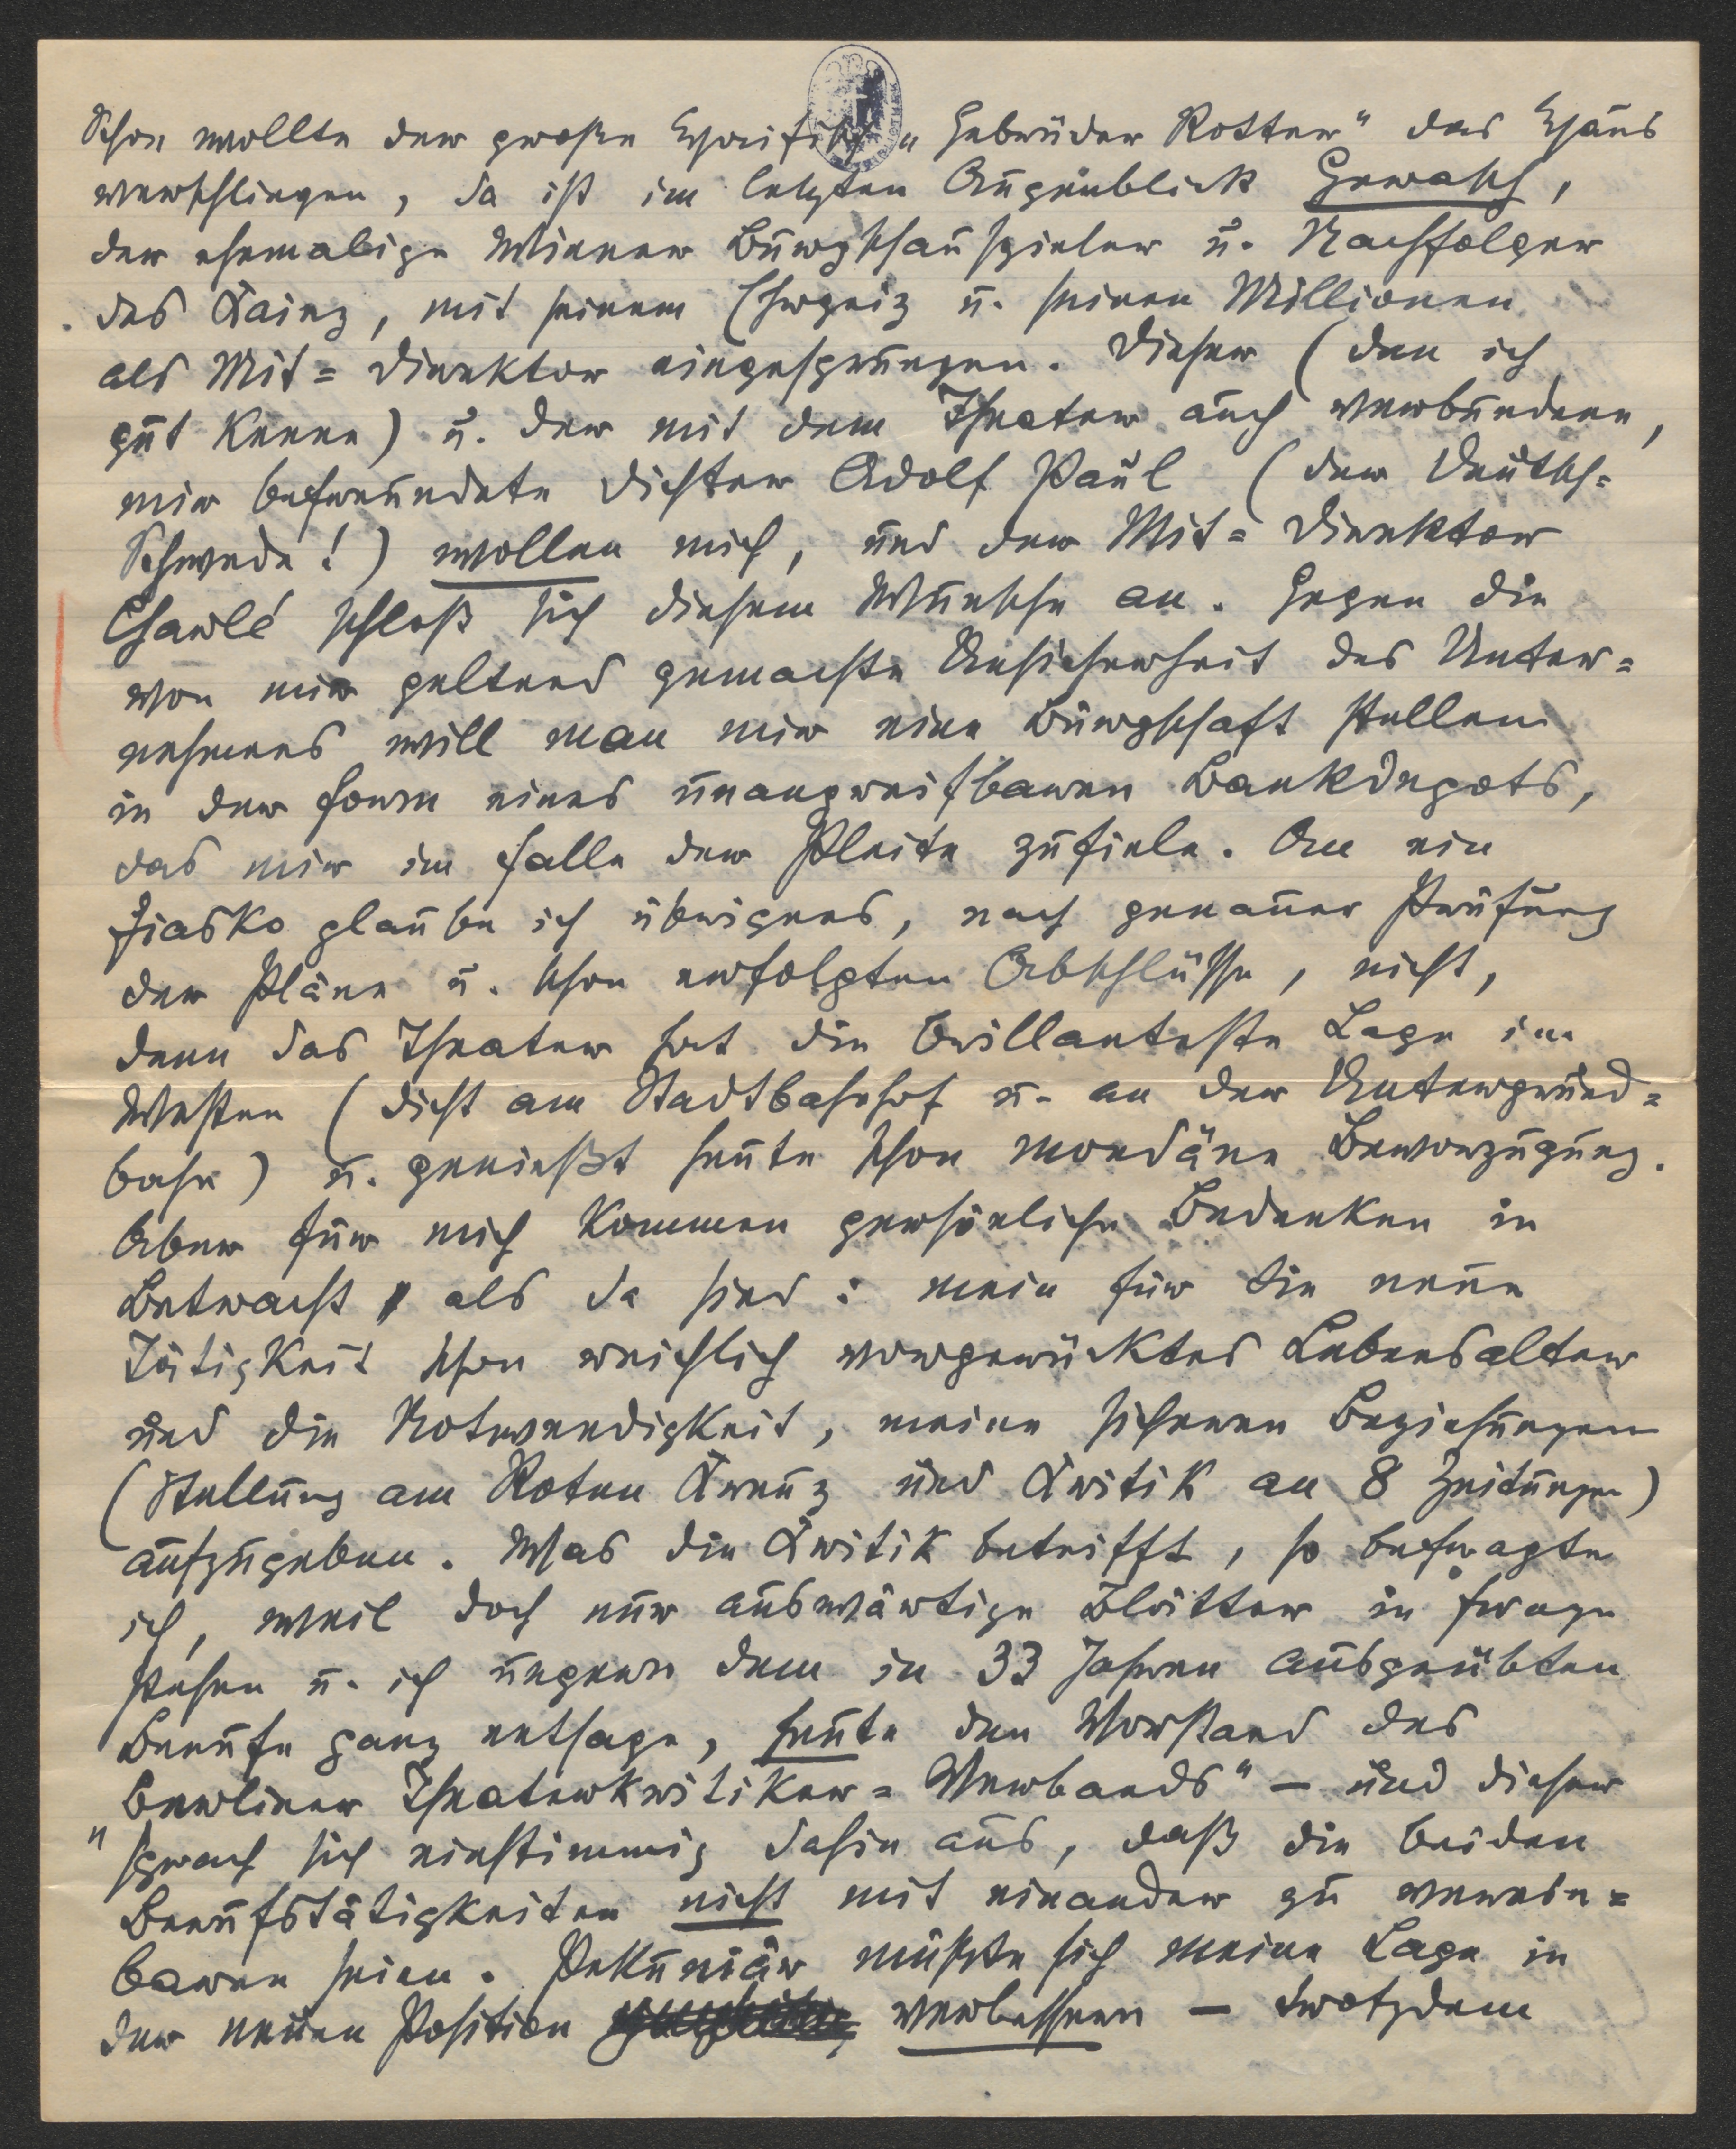 Schon wollte der große Haifisch „Gebrüder Rotter" das Haus
verschlingen, da ist im letzten Augenblick Gerasch,
der ehemalige Wiener Burgschauspieler u. Nachfolger
des Kainz, mit seinem Ehrgeiz u. seinen Millionen
als Mit=Direktor eingesprungen. Dieser (den ich
gut kenne) u. der mit dem Theater auch verbundene,
mir befreundete Dichter Adolf Paul (der Deutsch=
Schwede!) wollen mich, und der Mit=Direktor
Charlé schloß sich diesem Wunsche an. Gegen die
von mir geltend gemachte Unsicherheit des Unter=
nehmens will man mir eine Bürgschaft stellen
in der Form eines unangreifbaren Bankdepots,
das mir im Falle der Pleite zufiele. An ein
Fiasko glaube ich übrigens, nach genauer Prüfung
der Pläne u. schon erfolgten Abschlüsse, nicht,
denn das Theater hat die brillanteste Lage im
Westen (dicht am Stadtbahnhof u. an der Untergrund=
bahn) u. genießt heute schon mondäne Bevorzugung.
Aber für mich kommen persönliche Bedenken in
Betracht, als da sind: mein für die neue
Tätigkeit schon reichlich vorgerücktes Lebensalter
und die Notwendigkeit, meine sicheren Beziehungen
(Stellung am Roten Kreuz und Kritik an 8 Zeitungen)
aufzugeben. Was die Kritik betrifft, so befragte
ich, weil doch nur auswärtige Blätter in Frage
stehen u. ich ungern dem in 33 Jahren ausgeübten
Berufe ganz entsage, heute den Vorstand des
„Berliner Theaterkritiker=Verbands" — und dieser
sprach sich einstimmig dahin aus, daß die beiden
Berufstätigkeiten nicht mit einander zu verein=
baren seien. Pekuniär müßte sich meine Lage in
der neuen Position verbessern — trotzdem